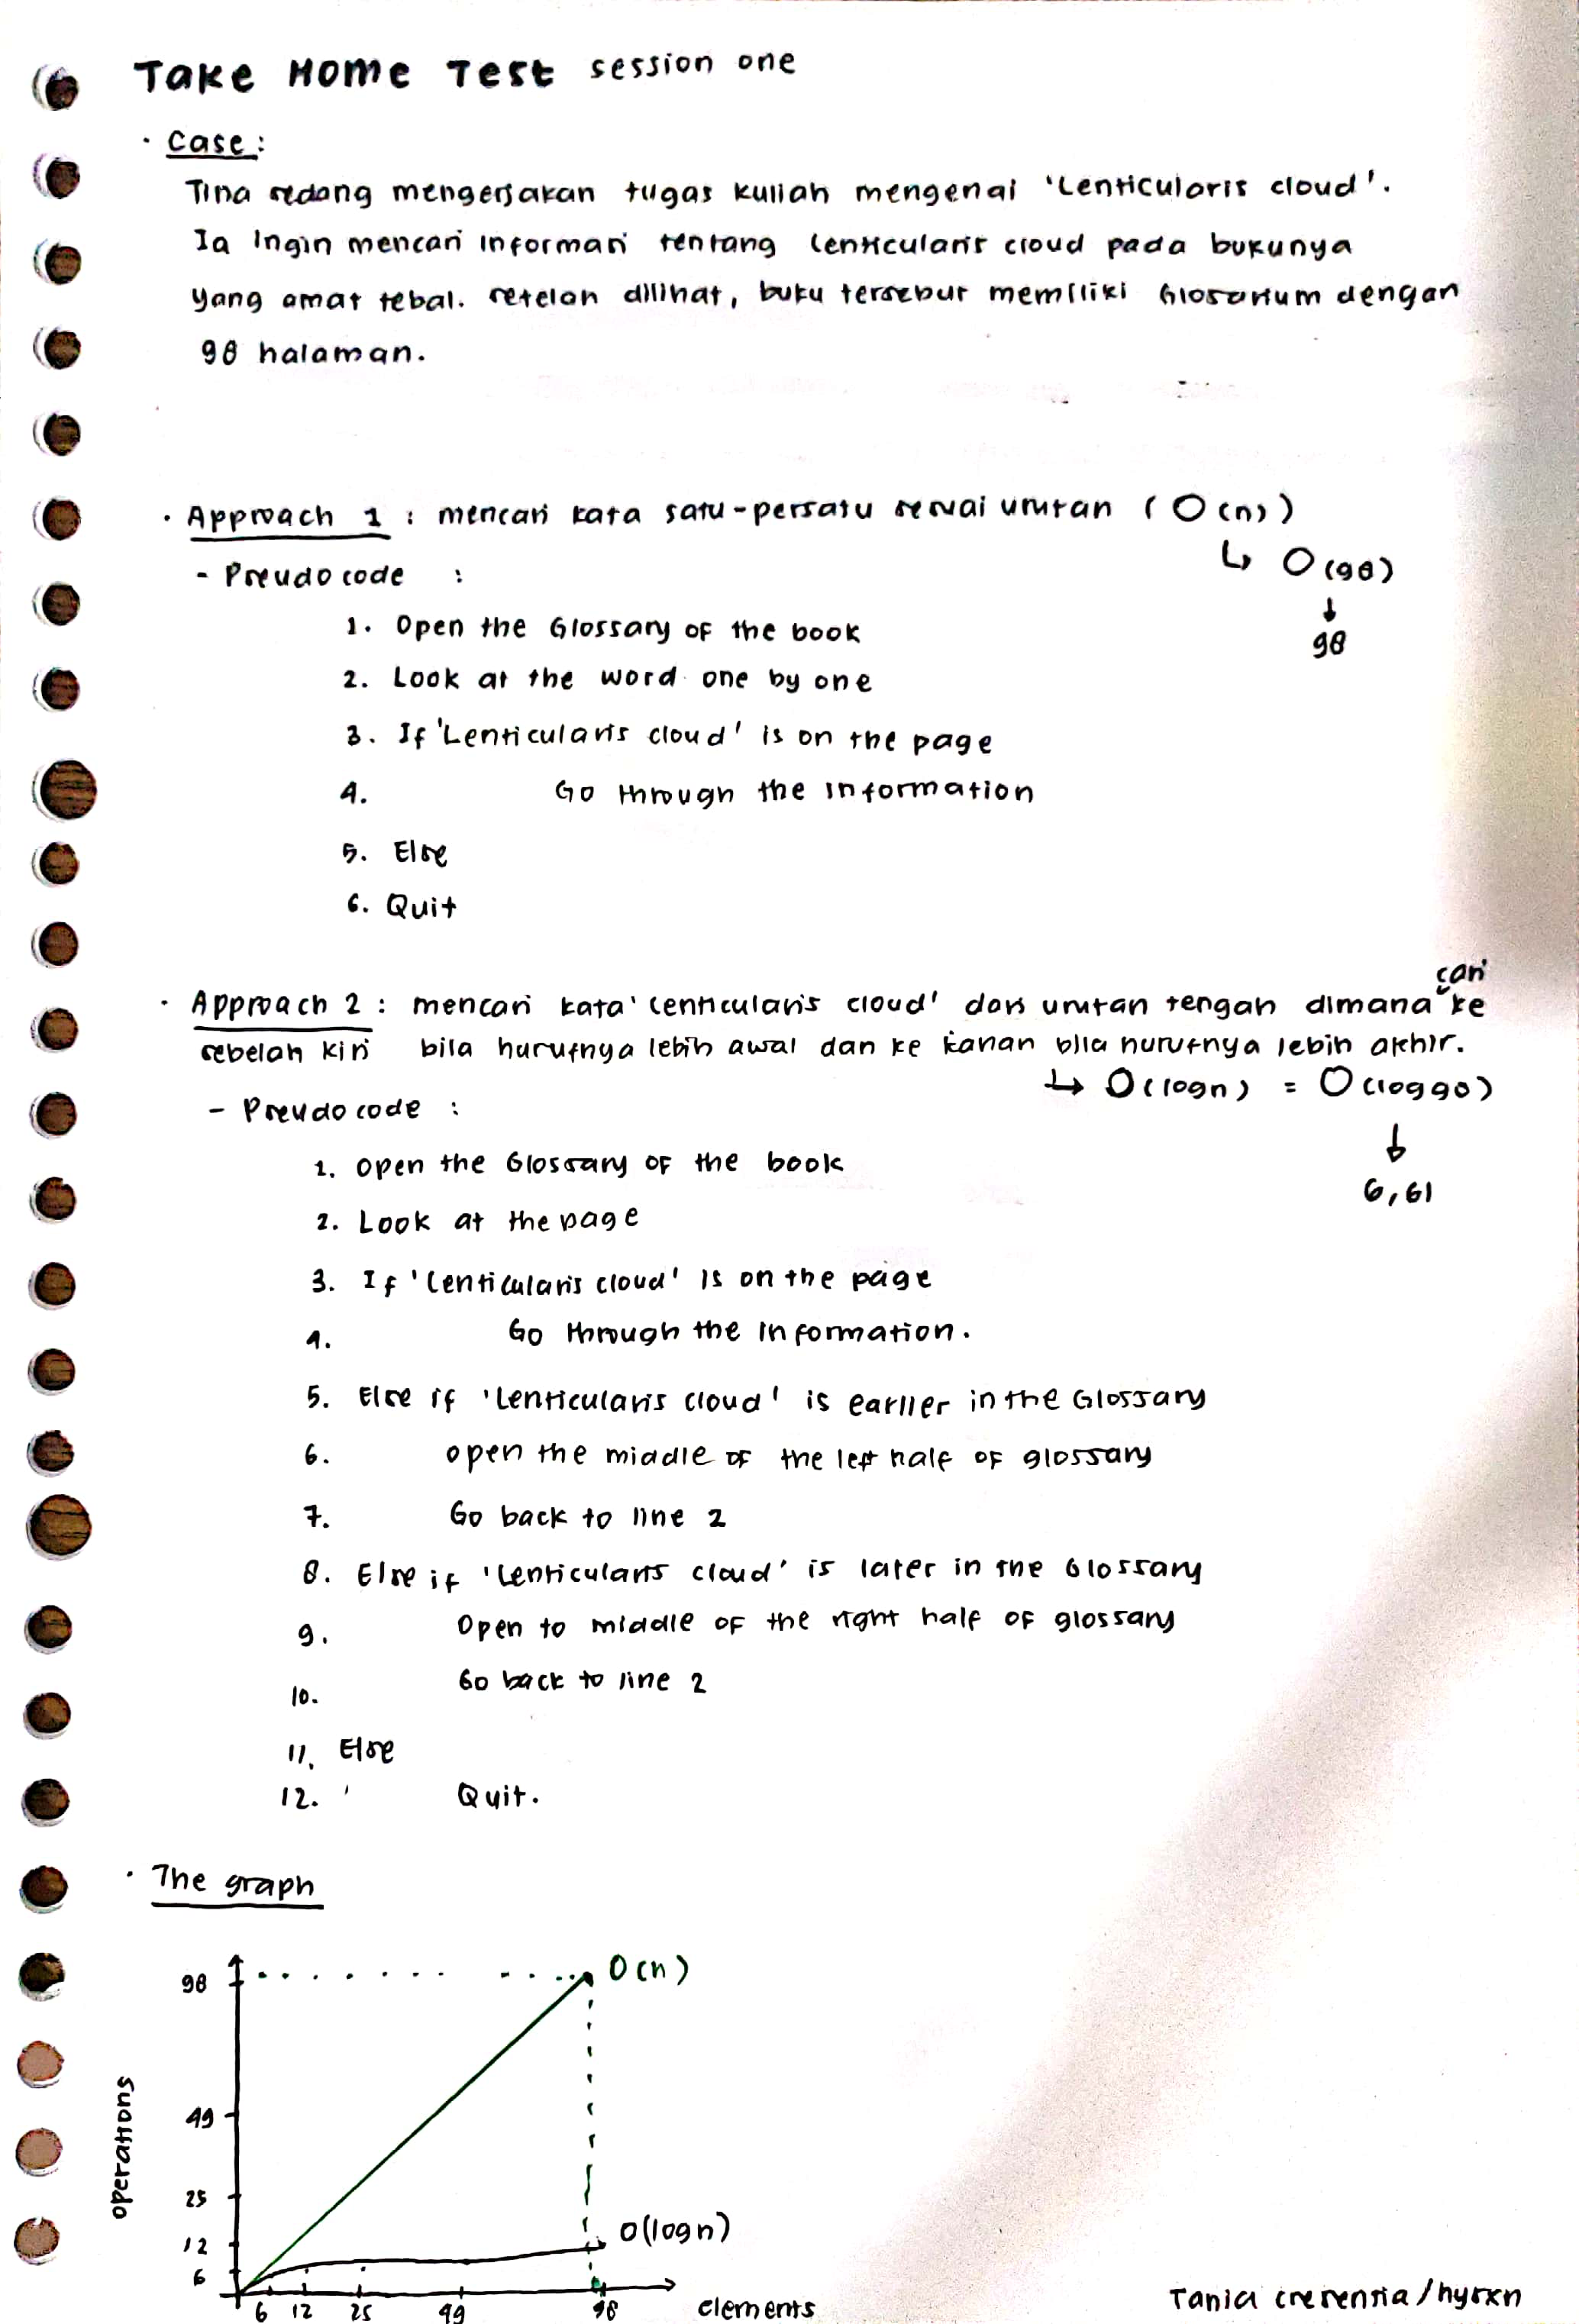 Take Home Test session one
• Case:
Tina sedang mengerjakan tugas kuliah mengenai 'Lenticularis cloud'.
Ia Ingin mencari informasi tentang lenticularis cloud pada bukunya
yang amat tebal. setelah dilihat, buku tersebut memiliki Glosarium dengan
98 halaman.
• Approach 1 : mencari kata satu-persatu sesuai urutan ( O(n) )
↳ O(98)
↓
98
- Pseudocode :
1. Open the Glossary of the book
2. Look at the word one by one
3. If 'Lenticularis cloud' is on the page
4. Go through the information
5. Else
6. Quit
cari
• Approach 2 : mencari kata 'lenticularis cloud' dari urutan tengah dimana ke
sebelah kiri bila hurufnya lebih awal dan ke kanan bila hurufnya lebih akhir.
↳ O(logn) = O(log98)
↓
6,61
- Pseudocode :
1. Open the Glossary of the book
2. Look at the page
3. If 'lenticularis cloud' is on the page
4. Go through the information.
5. Else if 'lenticularis cloud' is earlier in the Glossary
6. open the middle of the left half of glossary
7. Go back to line 2
8. Else if 'lenticularis cloud' is later in the Glossary
9. Open to middle of the right half of glossary
10. Go back to line 2
11. Else
12. Quit.
• The graph
98 O(n)
operations
49
25
12 O(logn)
6
6 12 25 49 98 elements
Tania cresentia / hyrxn